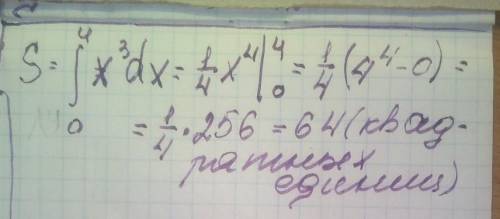 S = ∫₀⁴ x³dx = 1/4 x⁴ |₀⁴ = 1/4 (4⁴ - 0) =
= 1/4 · 256 = 64 (квад-
ратных
единиц)